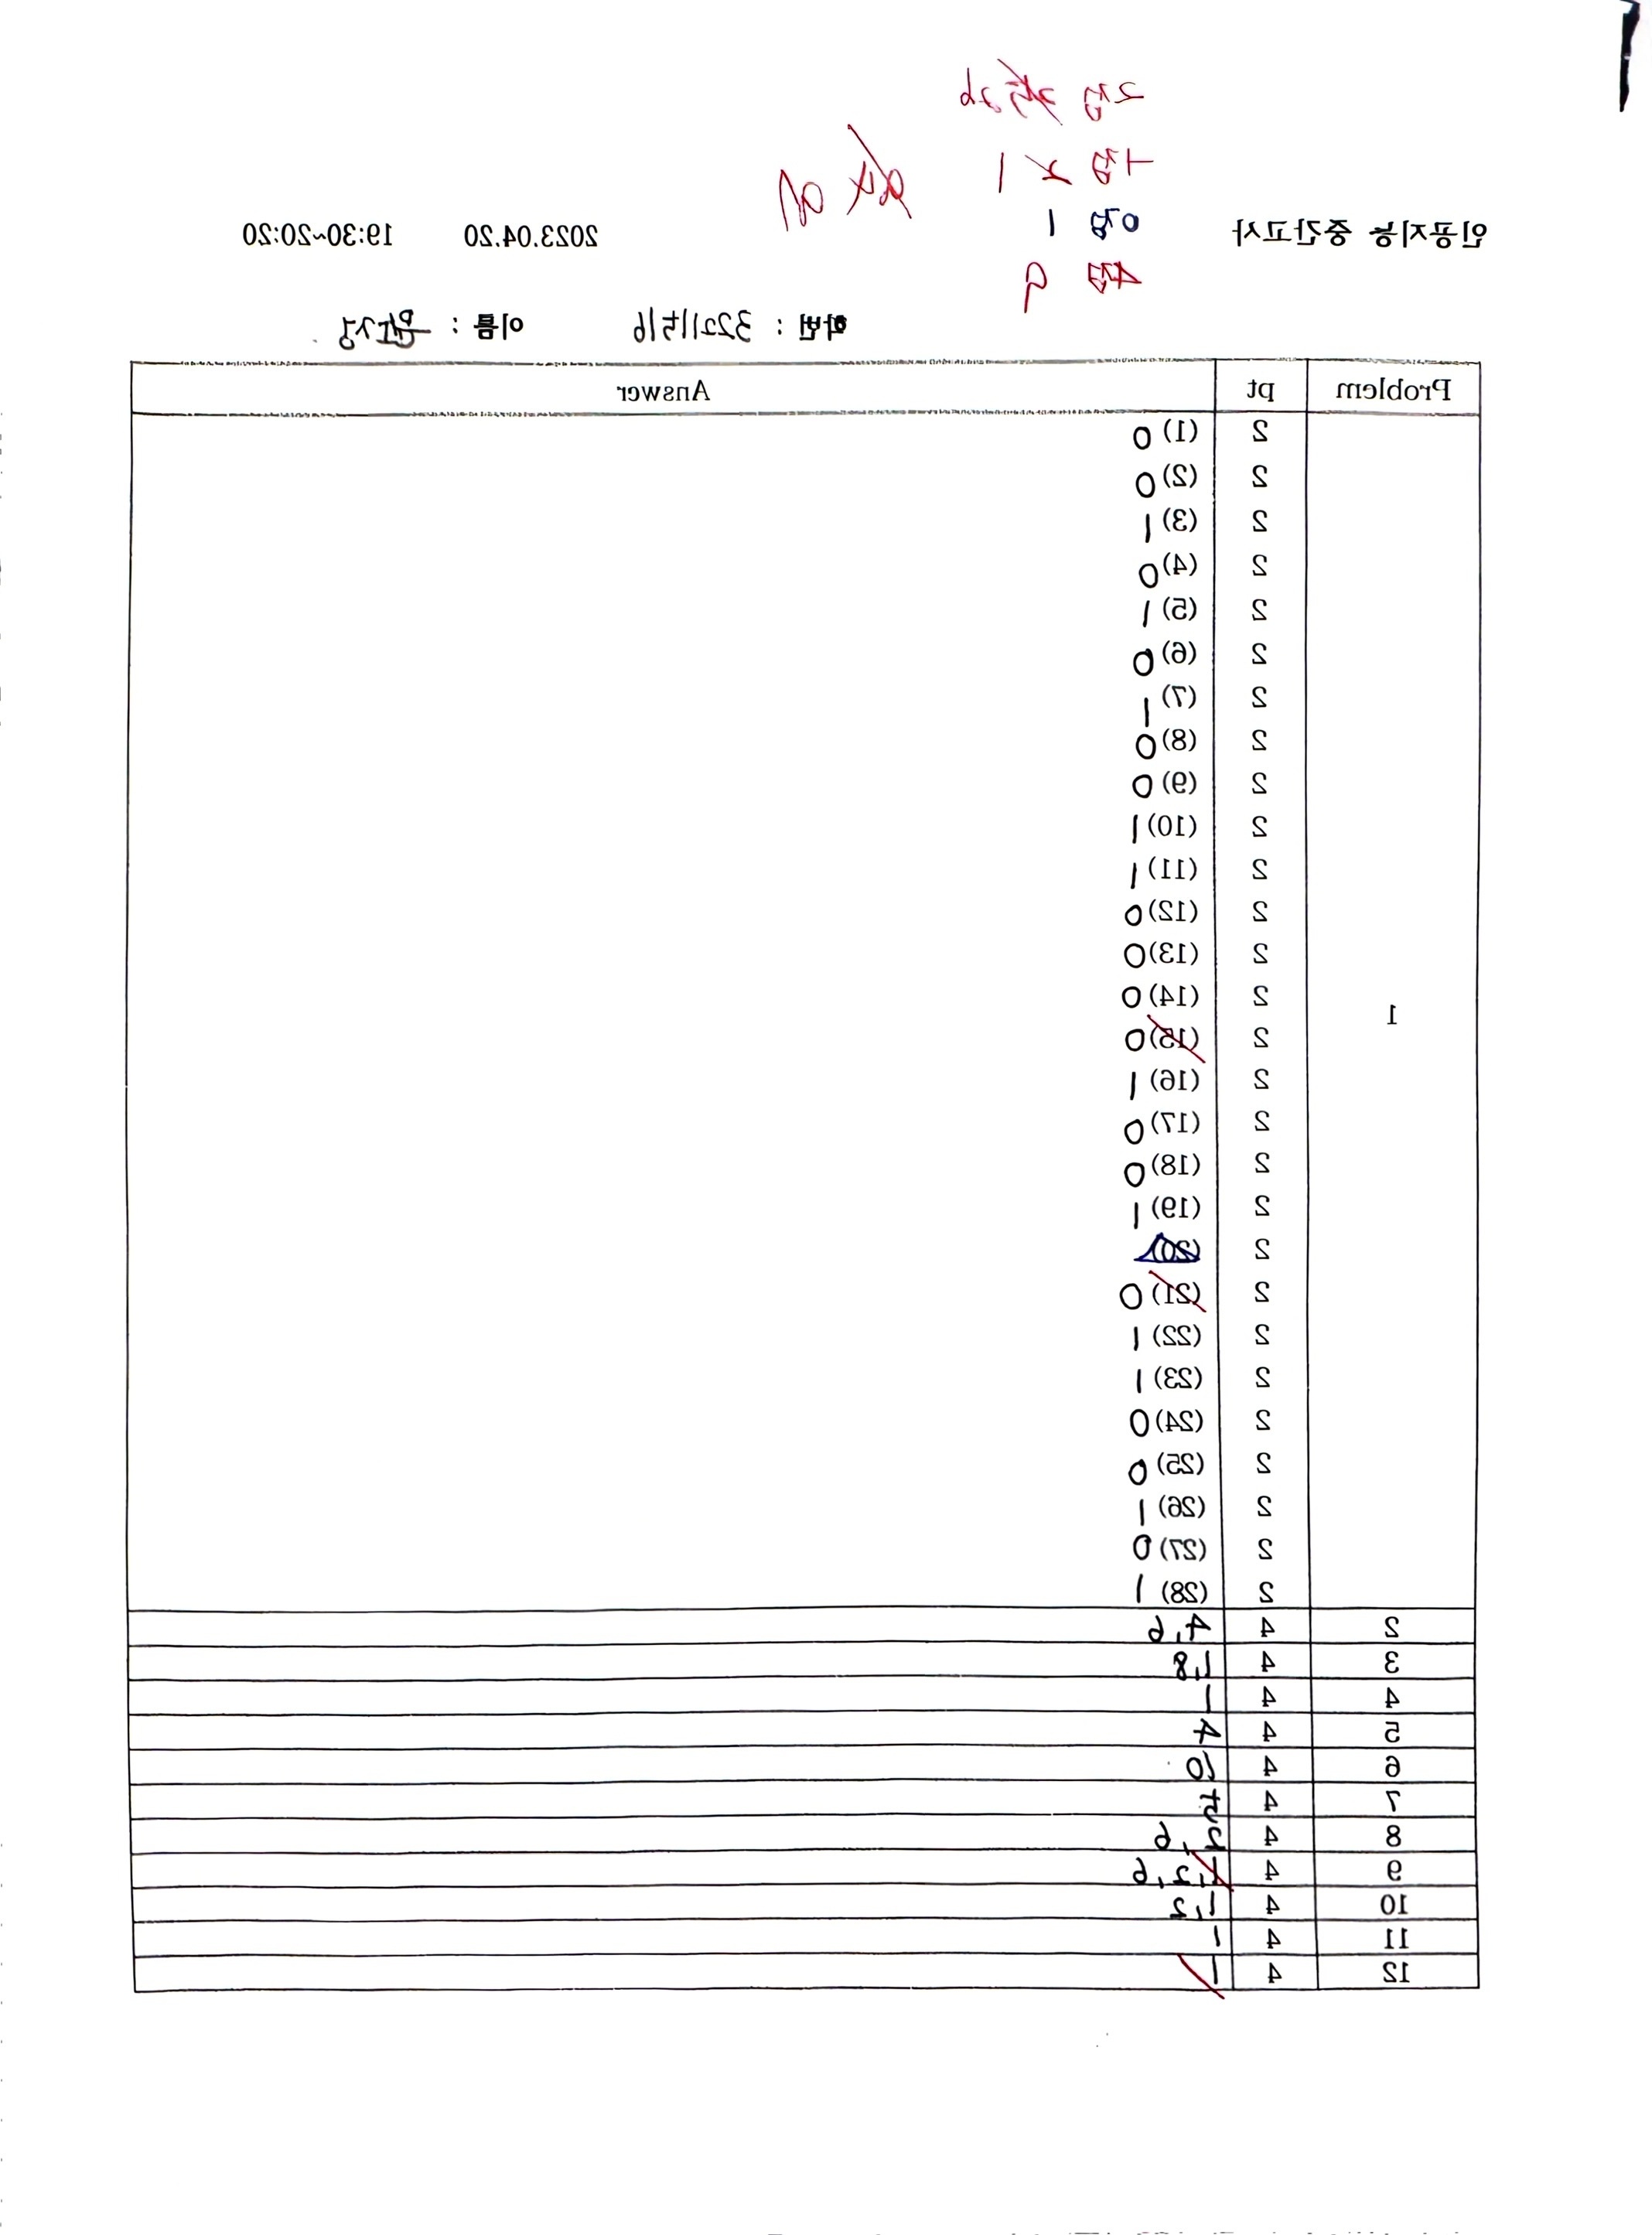 2점 26
1점 x 1
0점 1
4점 9
인공지능 중간고사 2023.04.20 19:30~20:20
학번 : 32211516 이름 :
Problem pt Answer
1
2 (1) 0
2 (2) 0
2 (3) 1
2 (4) 0
2 (5) 1
2 (6) 0
2 (7) 1
2 (8) 0
2 (9) 0
2 (10) 1
2 (11) 1
2 (12) 0
2 (13) 0
2 (14) 0
2 (15) 0
2 (16) 1
2 (17) 0
2 (18) 0
2 (19) 1
2 (20)
2 (21) 0
2 (22) 1
2 (23) 1
2 (24) 0
2 (25) 0
2 (26) 1
2 (27) 0
2 (28) 1
2 4 4,6
3 4 1,8
4 4 1
5 4 4
6 4 10
7 4 5
8 4 2,6
9 4 1,2,6
10 4 1,2
11 4 1
12 4 1